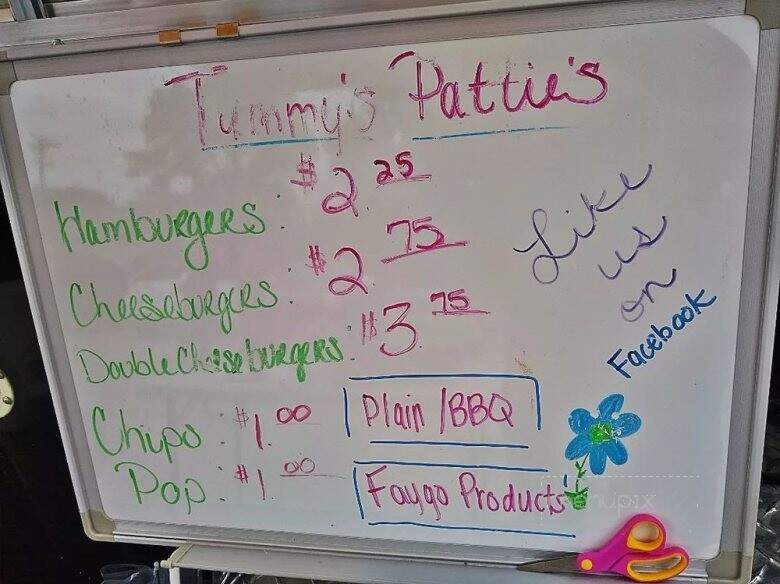 Tummy's Pattie's
Hamburgers: $2.25
Cheeseburgers: $2.75
Double Cheeseburgers: $3.75
Chips: $1.00 Plain/BBQ
Pop: $1.00 Faygo Products
Like
us
on
Facebook